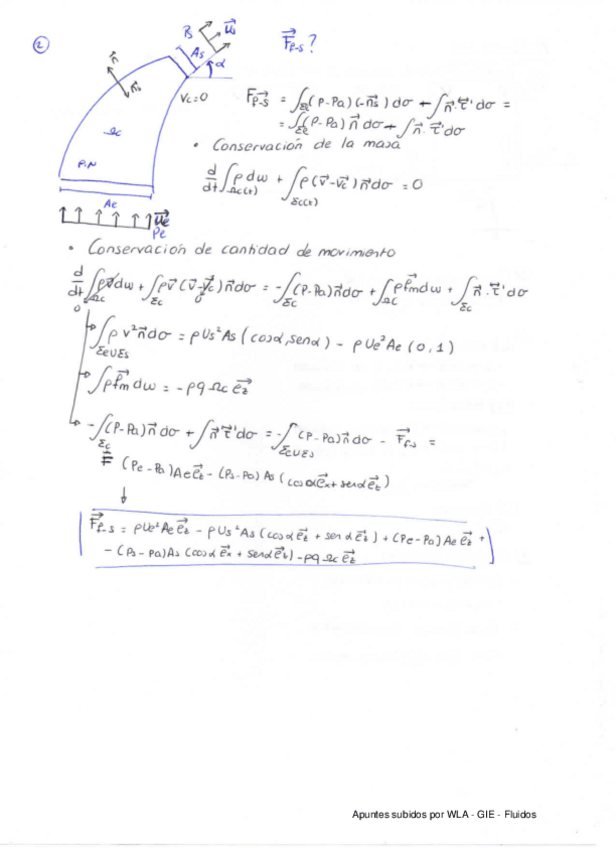 ②
B
Us
As
α
F⃗f-s ?
n⃗
n⃗s
Vc=0
F⃗f-s = ∫ (P-Pa)(-n⃗s) dσ + ∫ n⃗·τ⃗' dσ =
= ∫ (P-Pa) n⃗ dσ + ∫ n⃗·τ⃗' dσ
Ωc
• Conservación de la masa
d/dt ∫Ωc(t) ρ dω + ∫Σc(t) ρ (v⃗-v⃗c) n⃗ dσ = 0
Ae
Ue
Pe
• Conservación de cantidad de movimiento
d/dt ∫Ωc ρv⃗ dω + ∫Σc ρv⃗ (v⃗-v⃗c) n⃗ dσ = -∫Σc (P-Pa) n⃗ dσ + ∫Ωc ρf⃗m dω + ∫Σc n⃗·τ⃗' dσ
0 0
∫ΣeUΣs ρ v² n⃗ dσ = ρUs²As (cosα, senα) - ρUe²Ae (0,1)
∫ρf⃗m dω = -ρg Ωc e⃗z
-∫Σc (P-Pa) n⃗ dσ + ∫ n⃗ τ⃗' dσ = -∫ΣeUΣs (P-Pa) n⃗ dσ - F⃗f-s =
= (Pe-Pa) Ae e⃗z - (Ps-Pa) As (cosα e⃗x + senα e⃗z)
↓
F⃗f-s = ρUe²Ae e⃗z - ρUs²As (cosα e⃗z + senα e⃗z) + (Pe-Pa) Ae e⃗z +
- (Ps-Pa) As (cosα e⃗x + senα e⃗z) - ρg Ωc e⃗z
Apuntes subidos por WLA - GIE - Fluidos